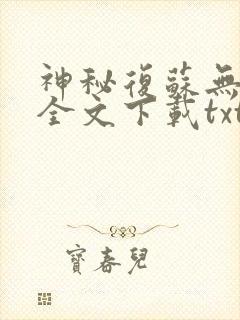 神秘復蘇無
全文下載txt
寶春兒